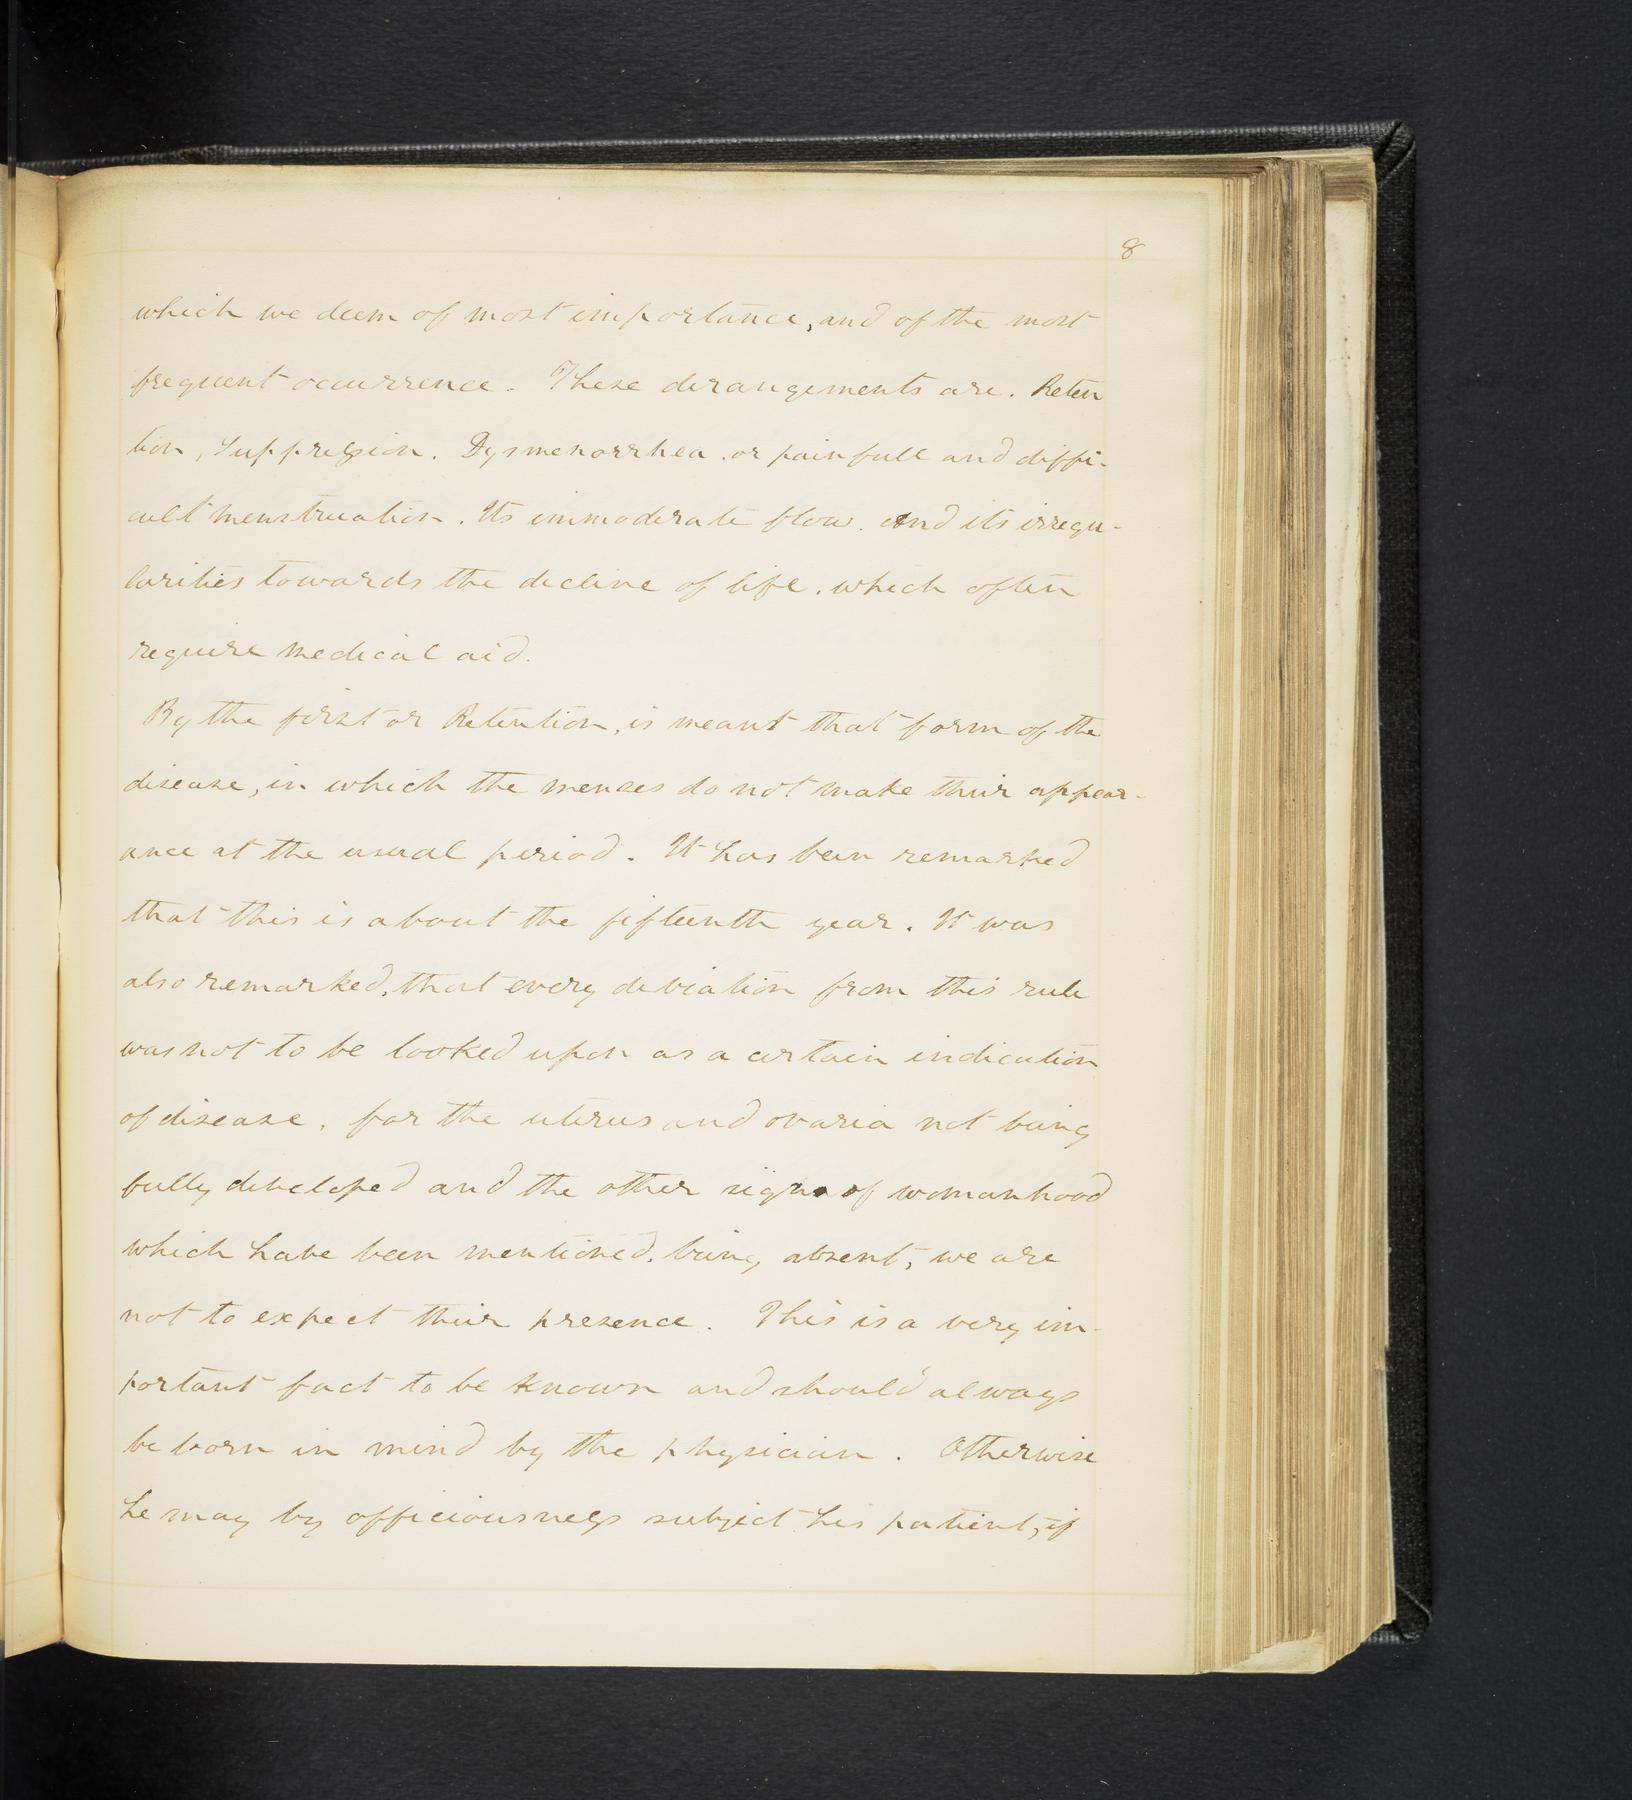 8
which we deem of most importance, and of the most
frequent occurrence. These derangements are. Reten
tion, Suppression. Dysmenorrhea. or painfull and diffi-
cult menstruation. Its immoderate flow. And its irregu-
larities towards the decline of life. which often
require medical aid.
By the first or Retention, is meant that form of the
disease, in which the menses do not make their appear-
ance at the usual period. It has been remarked
that this is about the fifteenth year. It was
also remarked, that every deviation from this rule
was not to be looked upon as a certain indication
of disease. for the uterus and ovaria not being
fully developed and the other signs of womanhood
which have been mentioned. being absent, we are
not to expect their presence. This is a very im-
portant fact to be known and should always
be born in mind by the physician. Otherwise
he may by officiousness subject his patient, if